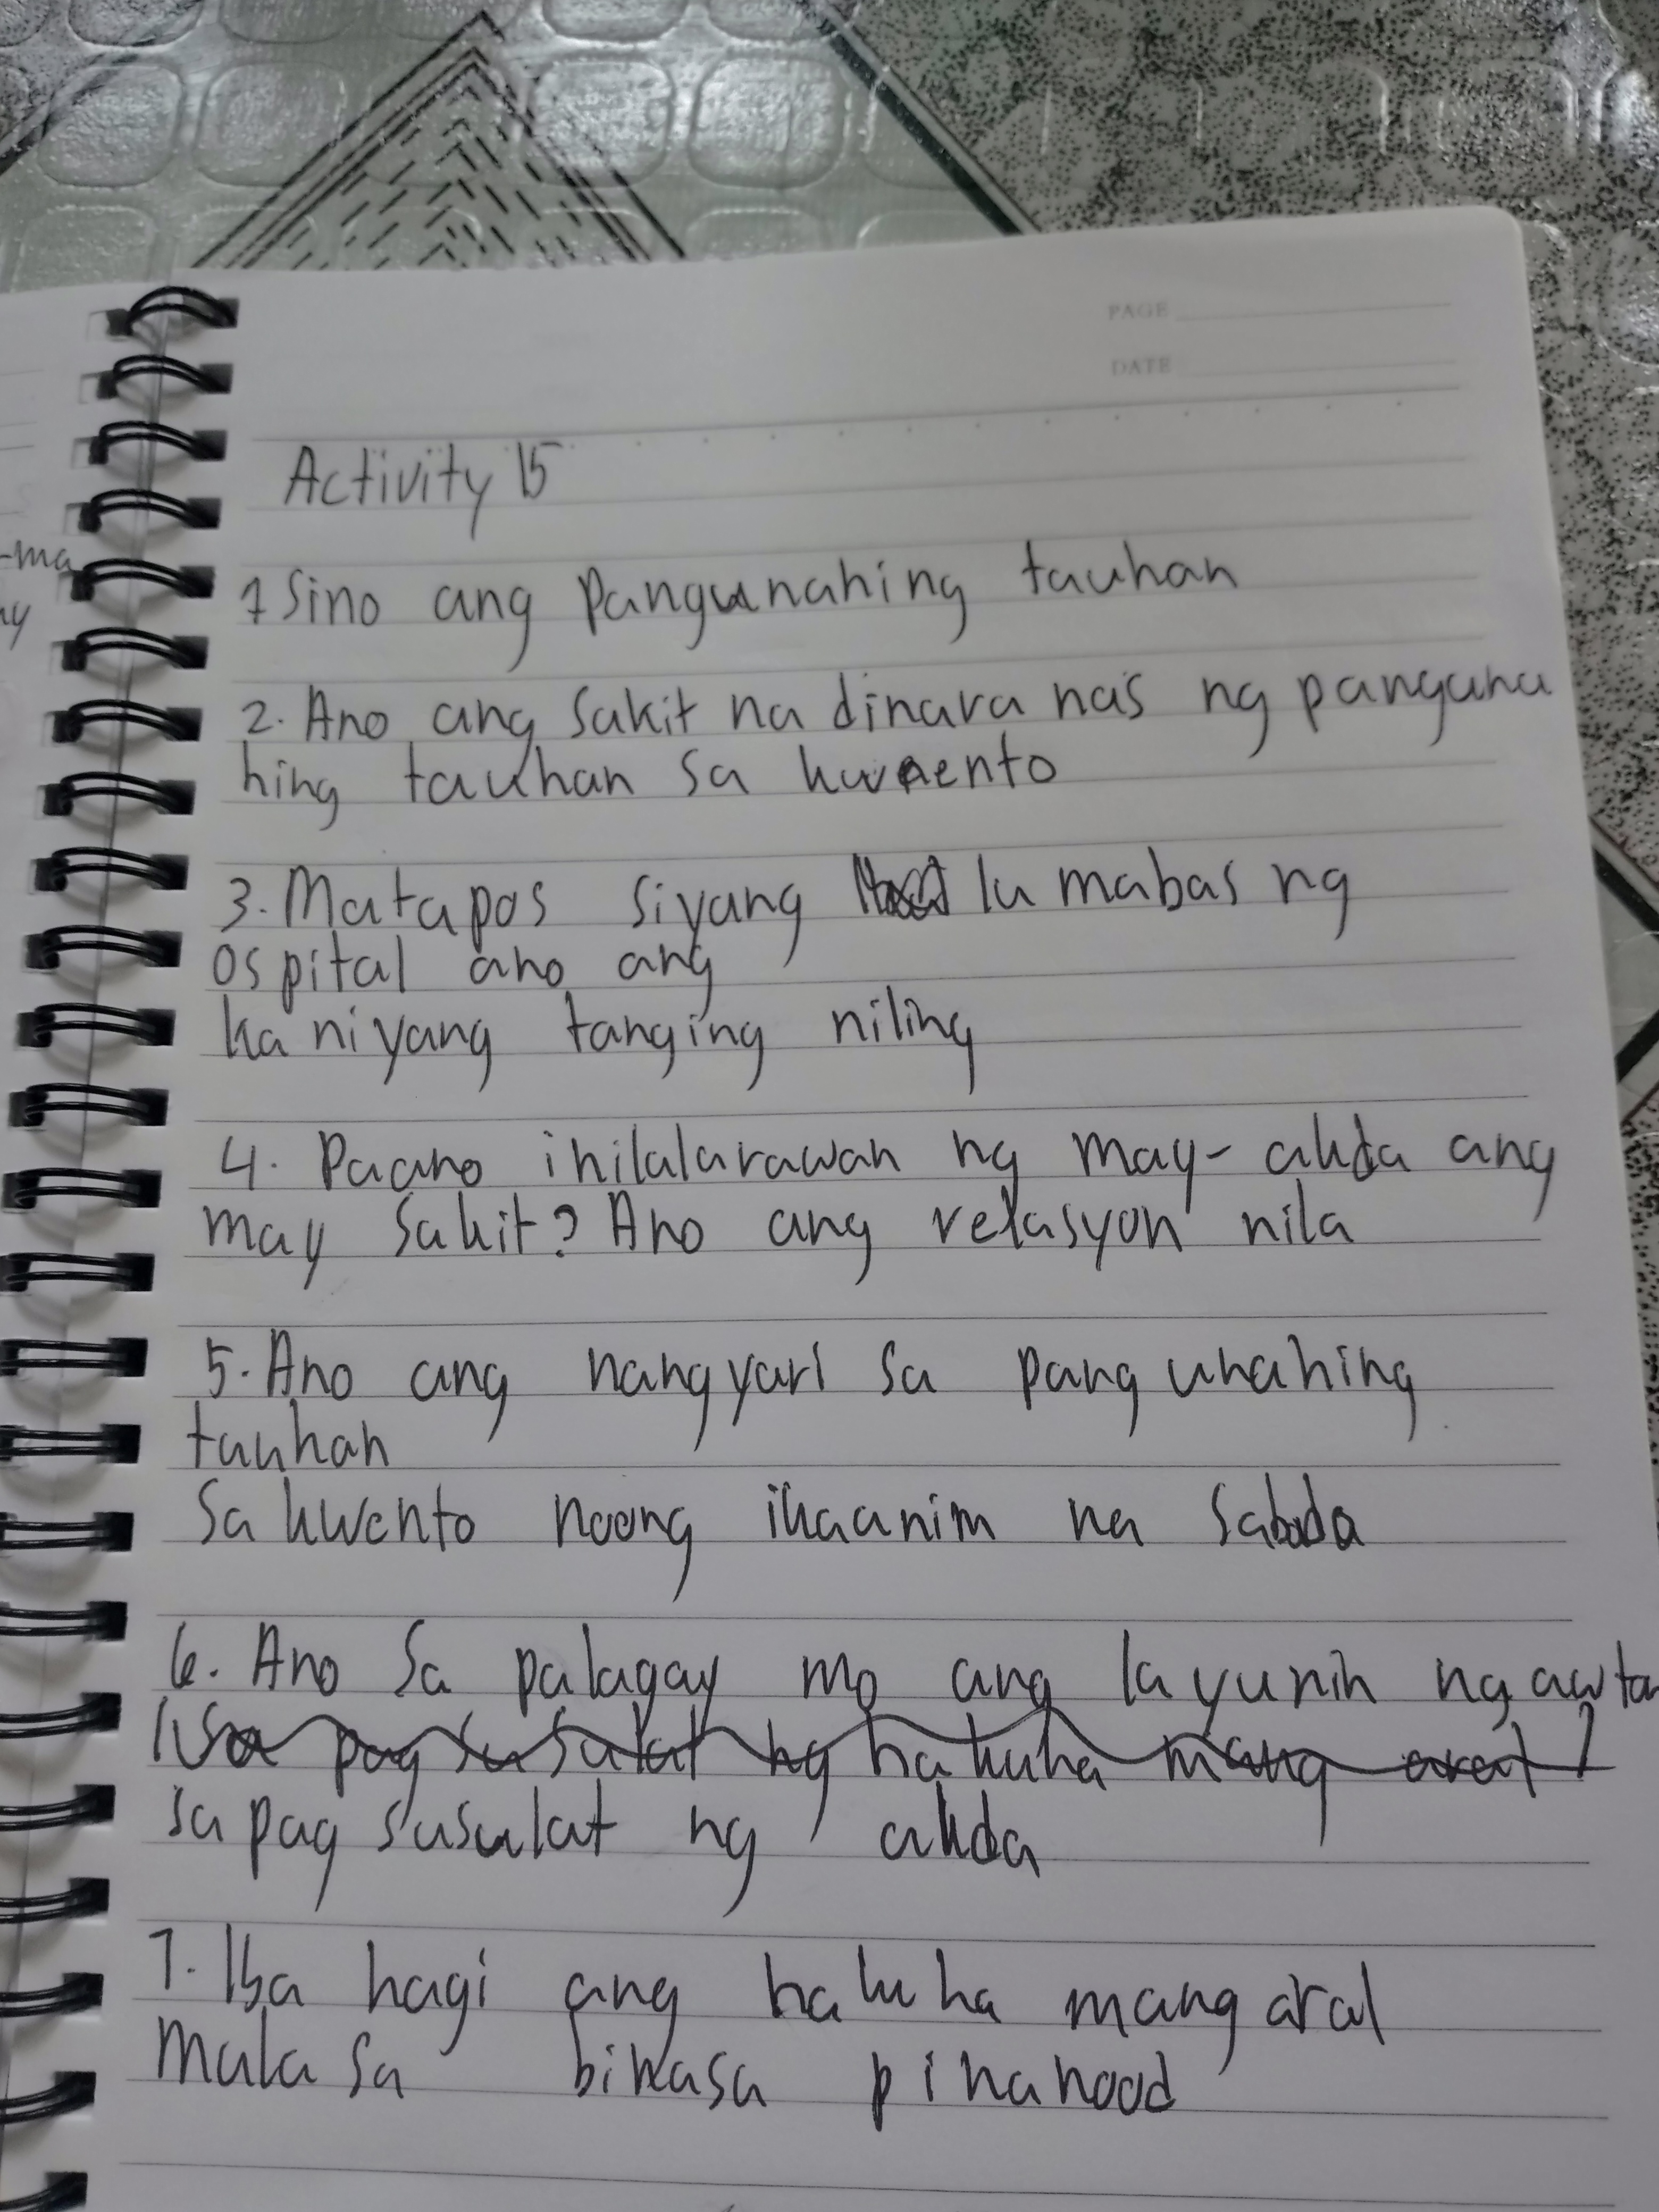 PAGE
DATE
Activity 15
1 Sino ang Pangunahing tauhan
2. Ano ang sakit na dinaranas ng panguna
hing tauhan sa kwento
3. Matapos siyang lumabas ng
ospital ano ang
kaniyang tanging niling
4. Paano inilalarawan ng may-akda ang
may sakit? Ano ang relasyon nila
5. Ano ang nangyari sa pangunahing
tauhan
sa kwento noong ikaanim na sabado
6. Ano sa palagay mo ang layunin ng
pag susulat ng nakuha mang aral
sa pag susulat ng akda
7. Iba hagi ang nakuha mang aral
mula sa binasa pinanood
-ma
ny